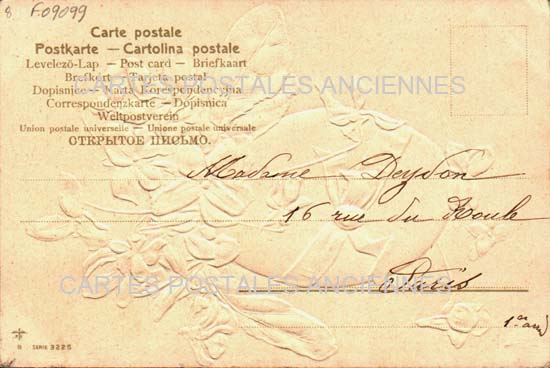 8 F09099
Carte postale
Postkarte – Cartolina postale
Levelezö-Lap – Post card – Briefkaart
Brefkort – Tarjeta postal
CARTES POSTALES ANCIENNES
Dopisnice – Karta Korespondencyjna
Correspondenzkarte – Dopisnica
Weltpostverein
Union postale universelle – Unione postale universale
ОТКРЫТОЕ ПИСЬМО.
Madame Deydon
16 rue du Roule
Paris
CARTES POSTALES ANCIENNES
SERIE 3225